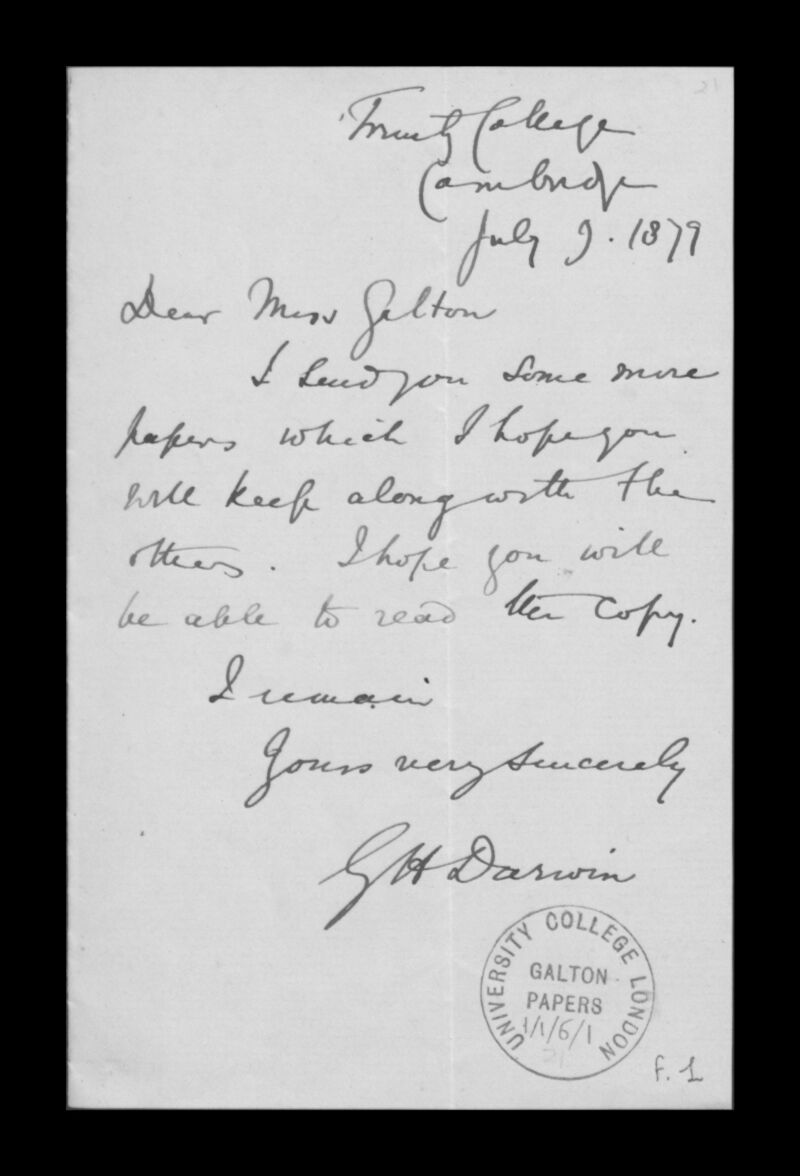 21
Trinity College
Cambridge
July 9. 1879
Dear Miss Galton
I send you some more
papers which I hope you
will keep along with the
others. I hope you will
be able to read the copy.
I remain
Yours very sincerely
G H Darwin
UNIVERSITY COLLEGE LONDON
GALTON
PAPERS
1/1/6/1
21
f. 1